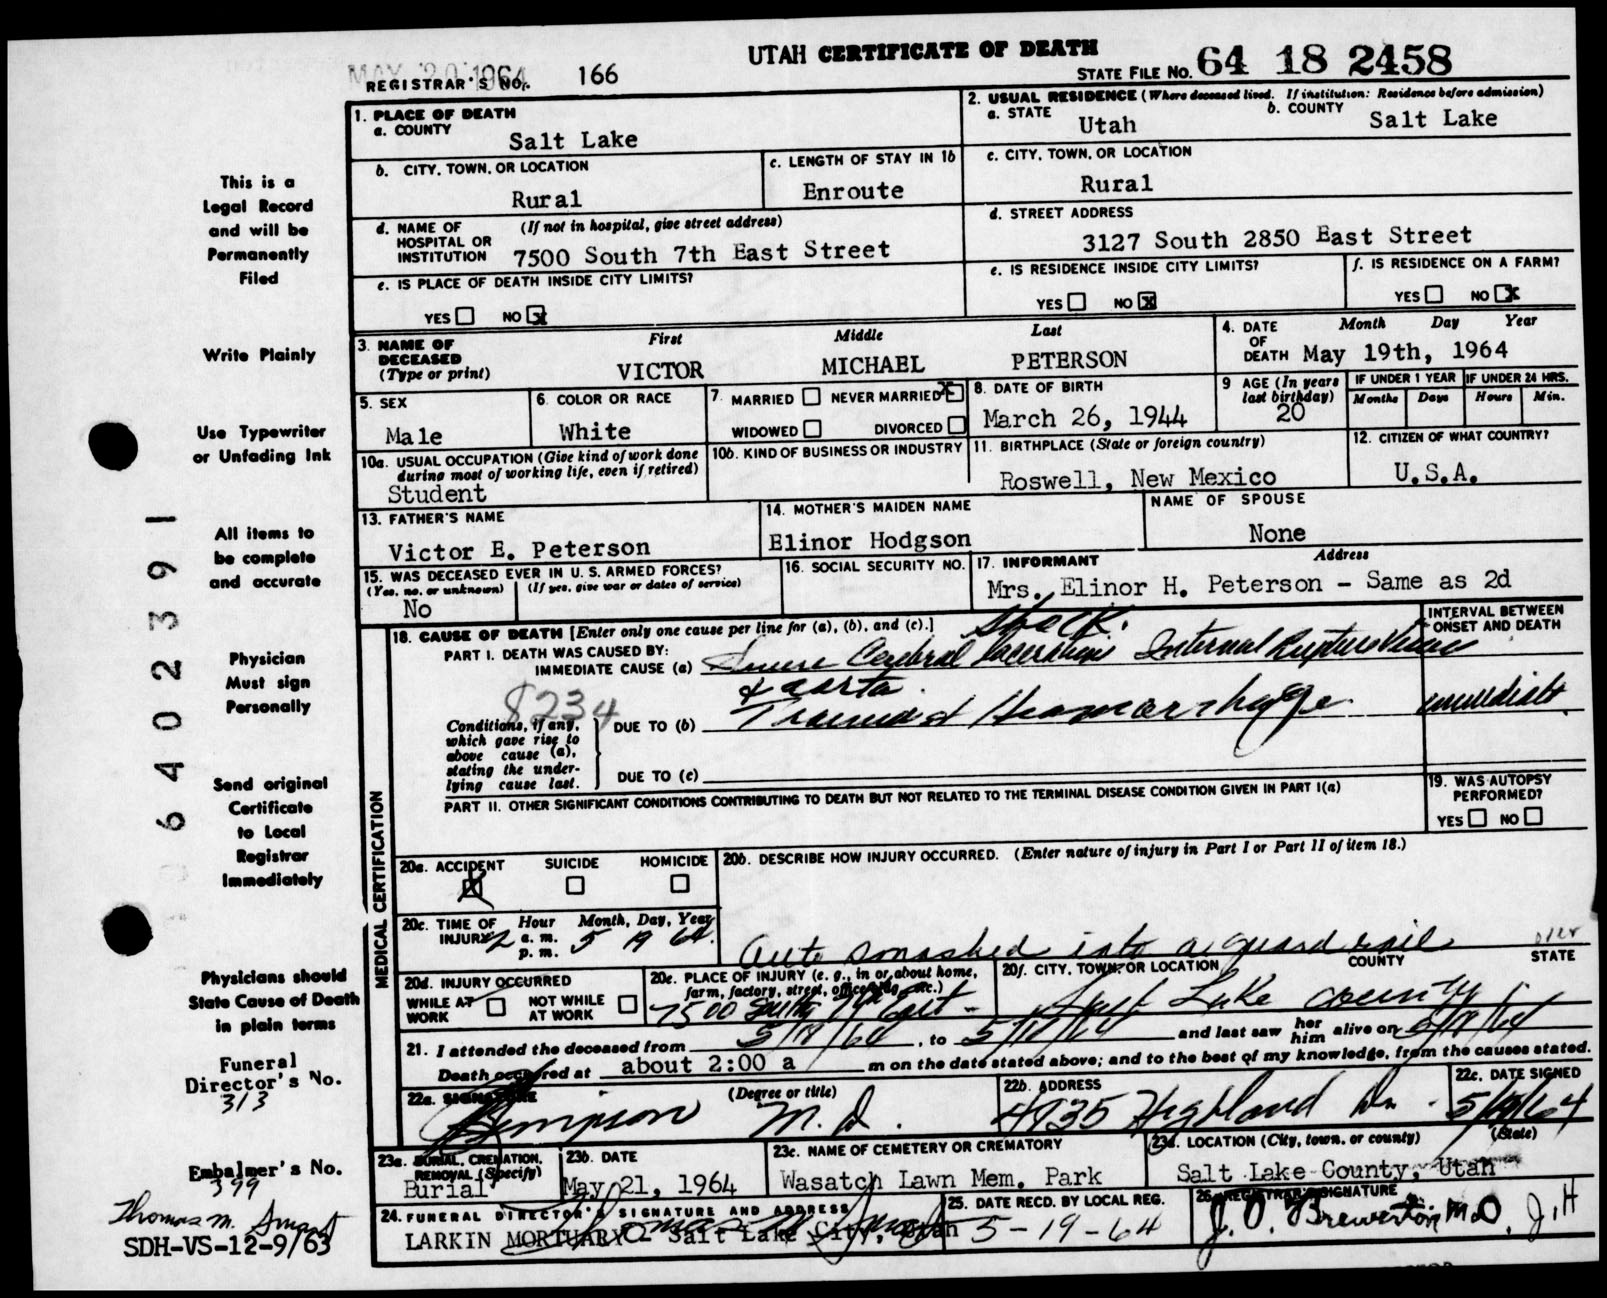 UTAH CERTIFICATE OF DEATH
MAY 20 1964
REGISTRAR'S No. 166
STATE FILE No. 64 18 2458
1. PLACE OF DEATH
a. COUNTY
Salt Lake
2. USUAL RESIDENCE (Where deceased lived. If institution: Residence before admission)
a. STATE Utah b. COUNTY Salt Lake
b. CITY, TOWN, OR LOCATION
Rural
c. LENGTH OF STAY IN 1b
Enroute
c. CITY, TOWN, OR LOCATION
Rural
d. NAME OF HOSPITAL OR INSTITUTION (If not in hospital, give street address)
7500 South 7th East Street
d. STREET ADDRESS
3127 South 2850 East Street
e. IS PLACE OF DEATH INSIDE CITY LIMITS?
YES NO X
e. IS RESIDENCE INSIDE CITY LIMITS?
YES NO X
f. IS RESIDENCE ON A FARM?
YES NO X
3. NAME OF DECEASED (Type or print)
First Middle Last
VICTOR MICHAEL PETERSON
4. DATE OF DEATH Month Day Year
May 19th, 1964
5. SEX
Male
6. COLOR OR RACE
White
7. MARRIED NEVER MARRIED X
WIDOWED DIVORCED
8. DATE OF BIRTH
March 26, 1944
9 AGE (In years last birthday)
20
IF UNDER 1 YEAR IF UNDER 24 HRS.
Months Days Hours Min.
10a. USUAL OCCUPATION (Give kind of work done during most of working life, even if retired)
Student
10b. KIND OF BUSINESS OR INDUSTRY
11. BIRTHPLACE (State or foreign country)
Roswell, New Mexico
12. CITIZEN OF WHAT COUNTRY?
U.S.A.
13. FATHER'S NAME
Victor E. Peterson
14. MOTHER'S MAIDEN NAME
Elinor Hodgson
NAME OF SPOUSE
None
15. WAS DECEASED EVER IN U. S. ARMED FORCES?
(Yes, no, or unknown) (If yes, give war or dates of service)
No
16. SOCIAL SECURITY NO.
17. INFORMANT Address
Mrs. Elinor H. Peterson - Same as 2d
MEDICAL CERTIFICATION
18. CAUSE OF DEATH [Enter only one cause per line for (a), (b), and (c).]
INTERVAL BETWEEN ONSET AND DEATH
PART I. DEATH WAS CAUSED BY:
Shock.
IMMEDIATE CAUSE (a) Severe Cerebral Lacerations Internal Rupture
& aorta.
8234
Conditions, if any, which gave rise to above cause (a), stating the underlying cause last.
DUE TO (b) Hemorrhage immediate
DUE TO (c)
PART II. OTHER SIGNIFICANT CONDITIONS CONTRIBUTING TO DEATH BUT NOT RELATED TO THE TERMINAL DISEASE CONDITION GIVEN IN PART I(a)
19. WAS AUTOPSY PERFORMED?
YES NO
20a. ACCIDENT SUICIDE HOMICIDE
X
20b. DESCRIBE HOW INJURY OCCURRED. (Enter nature of injury in Part I or Part II of item 18.)
Auto smashed into a guard rail
20c. TIME OF INJURY Hour Month, Day, Year
2 a. m. 5 19 64
p. m.
20d. INJURY OCCURRED
WHILE AT WORK NOT WHILE AT WORK
20e. PLACE OF INJURY (e. g., in or about home, farm, factory, street, office bldg., etc.)
7500 South 7th East
20f. CITY, TOWN, OR LOCATION COUNTY STATE
Salt Lake County
21. I attended the deceased from 5/19/64, to 5/19/64 and last saw her him alive on 5/19/64
Death occurred at about 2:00 a m on the date stated above; and to the best of my knowledge, from the causes stated.
22a. SIGNATURE (Degree or title)
Simpson M.D.
22b. ADDRESS
4935 Highland Dr.
22c. DATE SIGNED
5/19/64
23a. BURIAL, CREMATION, REMOVAL (Specify)
Burial
23b. DATE
May 21, 1964
23c. NAME OF CEMETERY OR CREMATORY
Wasatch Lawn Mem. Park
23d. LOCATION (City, town, or county) (State)
Salt Lake County, Utah
24. FUNERAL DIRECTOR'S SIGNATURE AND ADDRESS
LARKIN MORTUARY - Salt Lake City, Utah
25. DATE RECD. BY LOCAL REG.
5-19-64
26. REGISTRAR'S SIGNATURE
J. O. Brewerton M.D. J.H
This is a
Legal Record
and will be
Permanently
Filed
Write Plainly
Use Typewriter
or Unfading Ink
All items to
be complete
and accurate
Physician
Must sign
Personally
Send original
Certificate
to Local
Registrar
Immediately
Physicians should
State Cause of Death
in plain terms
Funeral
Director's No.
313
Embalmer's No.
399
Thomas M. Smart
SDH-VS-12-9/63
6402391